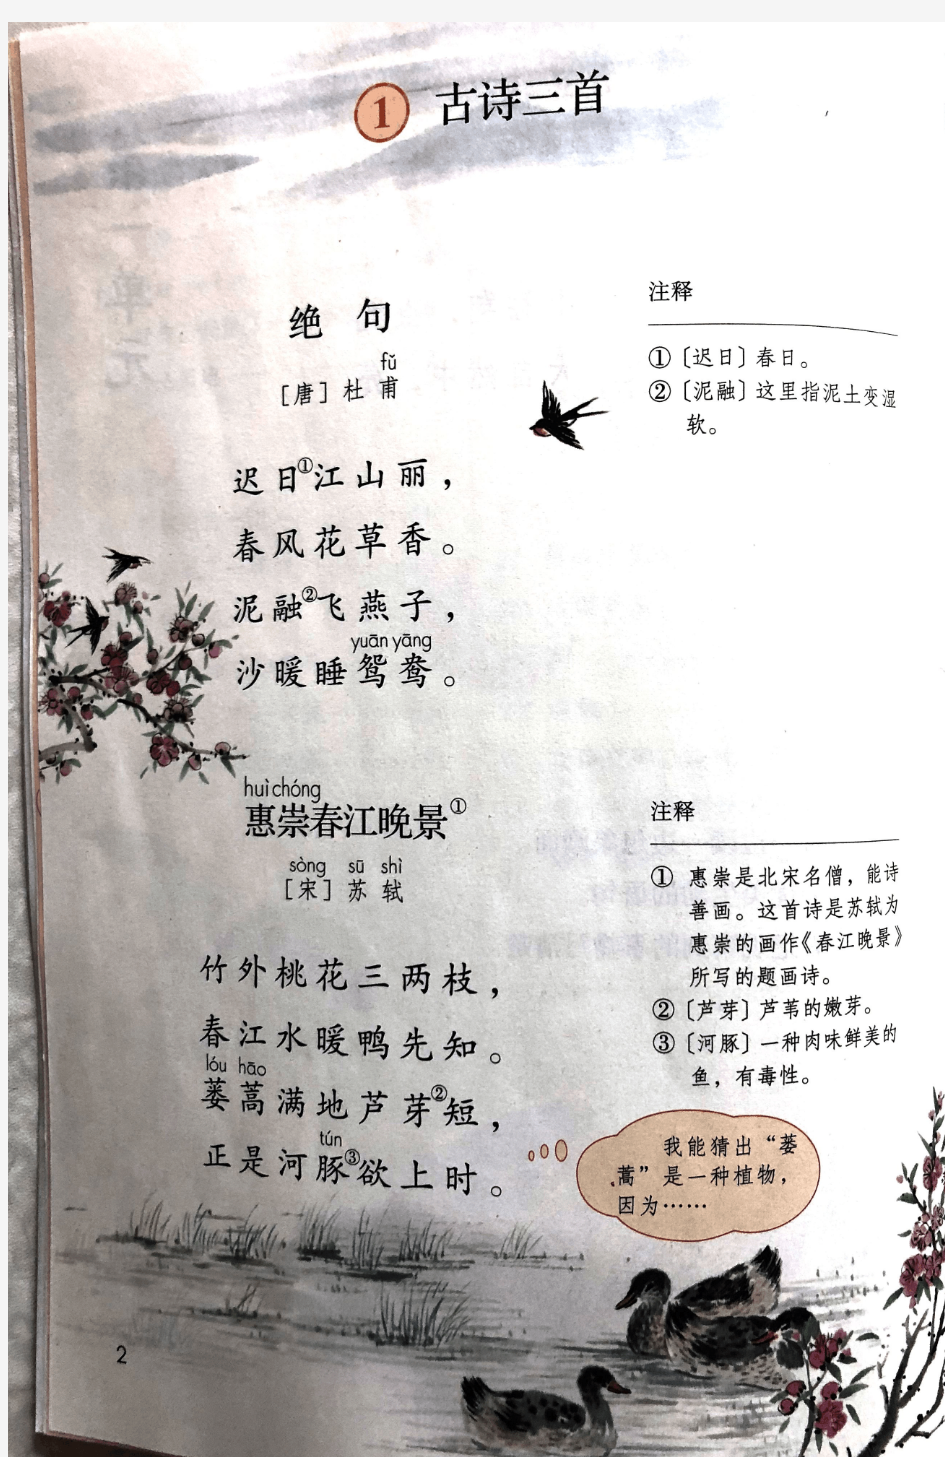 1 古诗三首
绝句
fǔ
[唐] 杜甫
迟日①江山丽，
春风花草香。
泥融②飞燕子，
yuān yāng
沙暖睡鸳鸯。
注释
①〔迟日〕春日。
②〔泥融〕这里指泥土变湿
软。
huì chóng
惠崇春江晚景①
sòng sū shì
[宋] 苏轼
竹外桃花三两枝，
春江水暖鸭先知。
lóu hāo
蒌蒿满地芦芽②短，
tún
正是河豚③欲上时。
注释
① 惠崇是北宋名僧，能诗
善画。这首诗是苏轼为
惠崇的画作《春江晚景》
所写的题画诗。
②〔芦芽〕芦苇的嫩芽。
③〔河豚〕一种肉味鲜美的
鱼，有毒性。
我能猜出“蒌
蒿”是一种植物，
因为……
2